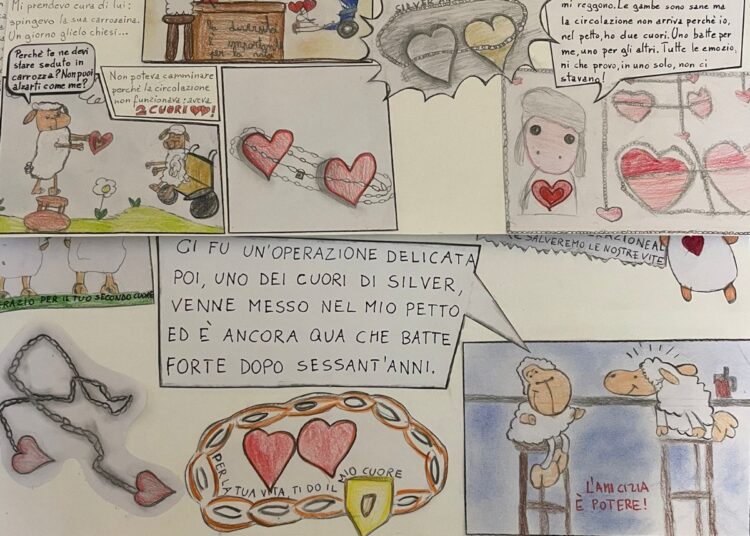 Mi prendevo cura di lui:
spingevo la sua carrozzina.
Un giorno glielo chiesi...
Perchè te ne devi
stare seduto in
carrozza? Non puoi
alzarti come me?
Non poteva camminare
perchè la circolazione
non funzionava: aveva
2 CUORI!
la diversità
è importante
per la vita
SILVER
mi reggono. Le gambe sono sane ma
la circolazione non arriva perchè io,
nel petto, ho due cuori. Uno batte per
me, uno per gli altri. Tutte le emozio,
ni che provo, in uno solo, non ci
stavano!
RAZIO PER IL TUO SECONDO CUORE
CI FU UN'OPERAZIONE DELICATA
POI, UNO DEI CUORI DI SILVER,
VENNE MESSO NEL MIO PETTO
ED È ANCORA QUA CHE BATTE
FORTE DOPO SESSANT'ANNI.
SALVEREMO LE NOSTRE VITE
PER LA TUA VITA, TI DO IL MIO CUORE
L'AMICIZIA
È POTERE!